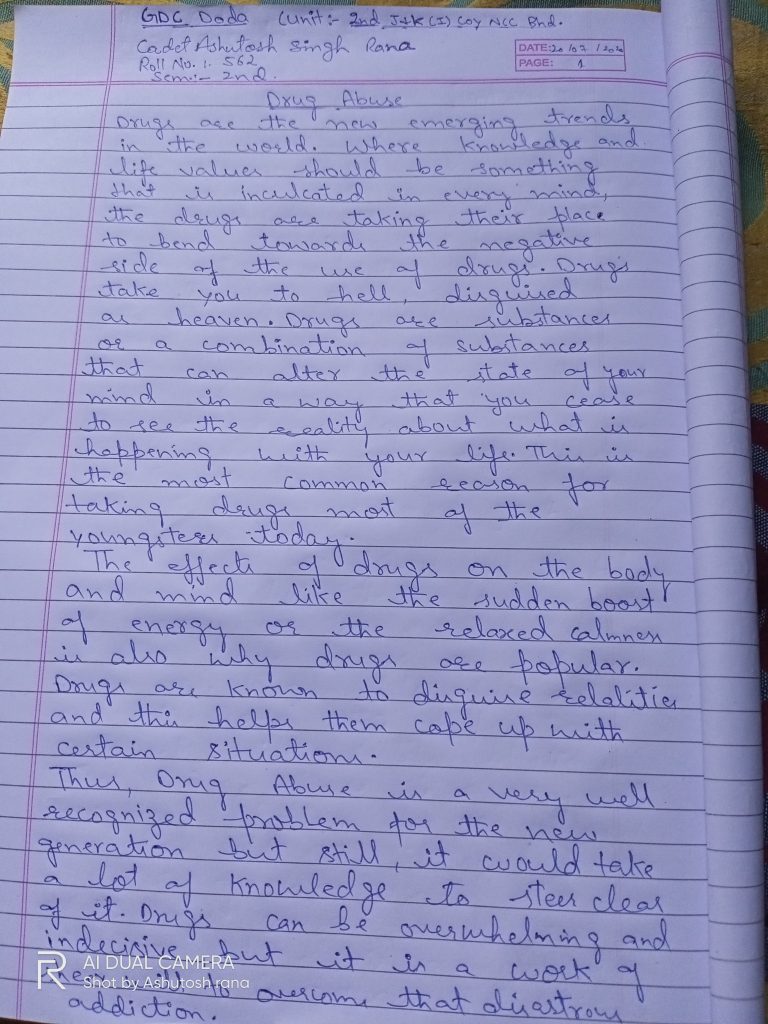 GDC Doda (Unit:- 2nd J&K (I) Coy NCC Bhd.
Cadet Ashutosh Singh Rana
Roll No. :. 562
Sem:- 2nd.
DATE: 20/07/2020
PAGE: 1
Drug Abuse
Drugs are the new emerging trends
in the world. Where knowledge and
life values should be something
that is inculcated in every mind,
the drugs are taking their place
to bend towards the negative
side of the use of drugs. Drugs
take you to hell, disguised
as heaven. Drugs are substances
or a combination of substances
that can alter the state of your
mind in a way that you cease
to see the reality about what is
happening with your life. This is
the most common reason for
taking drugs most of the
youngsters today.
The effects of drugs on the body
and mind like the sudden boost
of energy or the relaxed calmness
is also why drugs are popular.
Drugs are known to disguise relalities
and this helps them cope up with
certain situations.
Thus, Drug Abuse is a very well
recognized problem for the new
generation but still, it would take
a lot of knowledge to steer clear
of it. Drugs can be overwhelming and
indecisive but it is a work of
to overcome that disastrous
addiction.
AI DUAL CAMERA
Shot by Ashutosh rana